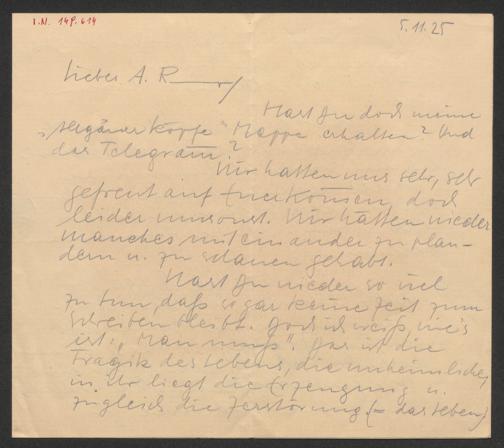 I.N. 149.614
5.11.25
Lieber A. R
Hast Du doch meine
"Bergäuer Köpfe" Mappe erhalten? Und
das Telegramm?
Wir hatten uns sehr, sehr
gefreut auf Euer Kommen, doch
leider umsonst. Wir hätten wieder
manches miteinander zu plau-
dern u. zu schauen gehabt.
Hast Du wieder so viel
zu tun, daß sogar keine Zeit zum
Schreiben bleibt. Doch ich weiß, wie's
ist: "Man muß". Das ist die
Tragik des Lebens, die unheimliche,
in ihr liegt die Erzeugung u.
zugleich die Zerstörung (= das Leben)